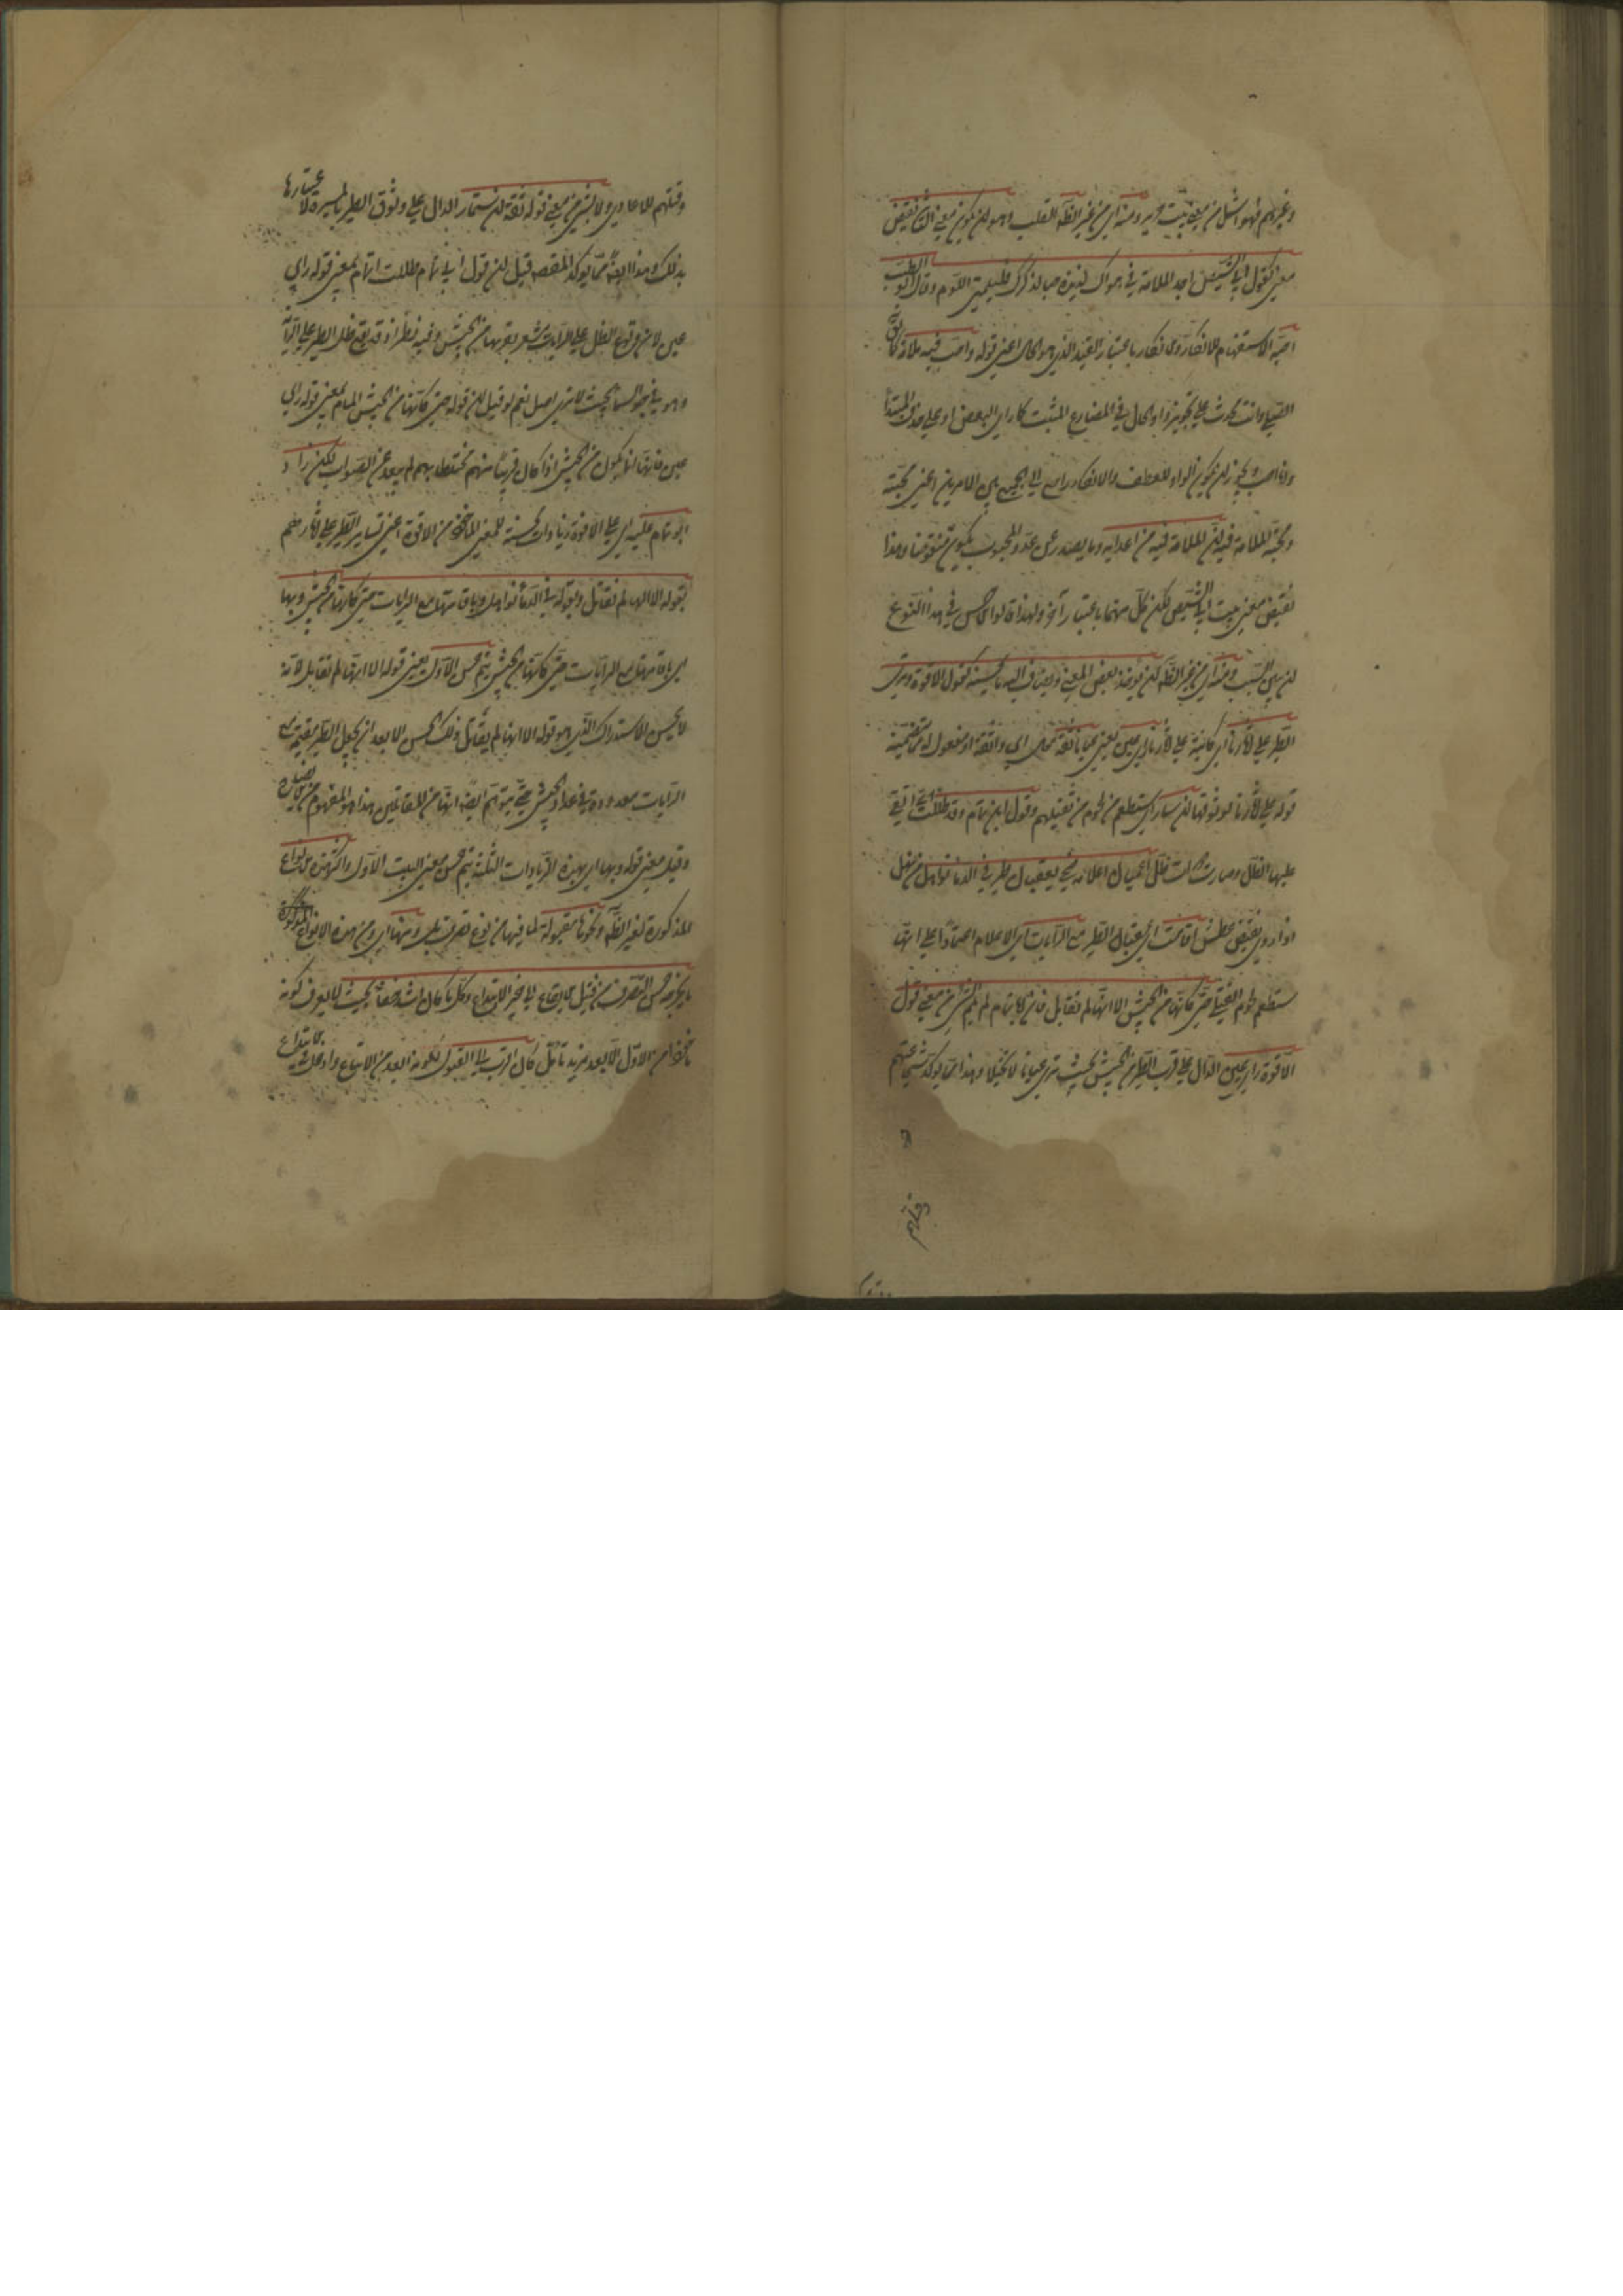 وغيرهم فهو اشمل من معنى بيت جرير ومنه اي من غير الظه القلب وهو ان يكون معنى الثاني نقيض
معنى كقول ابي الشيص اجد الملامة في هواك لذيذة حبا لذكرك فليلمني اللوم وقال ابو الطيب
احبه الاستفهام للانكار والانكار باعتبار القيد الذي هو الحال اعني قوله واحب فيه ملامة كما يق
اتصلي وانت محدث على تجويز واو الحال في المضارع المثبت كما راي البعض او على حذف المبتدا
وانا احب ويجوز ان يكون الواو للعطف والانكار راجع الى الجمع بين الامرين اعني محبته
ومحبة الملامة فيه ان الملامة فيه من اعدائه وما يصدر عن عدو المحبوب يكون مبغوضا وهذا
نقيض معنى بيت ابي الشيص لكن كل منهما باعتبار آخر ولهذا قالوا الاحسن في هذا النوع
ان يبين السبب ومنه اي من غير الظه ان يوخذ بعض المعنى ويضاف اليه ما يحسنه كقول الافوه وترى
الطير على آثارنا اي كائنة على آثارنا راي عين يعني عيانا ثقة حال اي واثقة او مفعول له مما يتضمنه
قوله على آثارنا لوثوقها ان ستمار اي ستطعم من لحوم من نقتلهم وقول ابي تمام وقد ظللت اي القي
عليها الظل وصارت ذوات ظل عقبان اعلامه ضحى بعقبان طير في الدماء نواهل من نهل
اذا روي نقيض عطش اقامت اي عقبان الطير مع الرايات اي الاعلام اعتمادا على انها
ستطعم لحوم القتلى حتى كانها من الجيش الا انها لم تقاتل فان ابا تمام لم يلم بشئ من معنى قول
الافوه راي عين الدال على قرب الطير من الجيش بحيث ترى عيانا لا تخيلا وهذا مما يوكد شجاعتهم
وقتلهم
وقتلهم للاعادي ولا بشئ من معنى قوله ثقة ان ستمار الدال على وثوق الطير بالميرة لاعتيادها
بذلك وهذا ايضا مما يوكد المقصود قيل ان قول ابي تمام ظللت المام بمعنى قوله راي
عين لان وقوع الظل على الرايات مشعر بقربها من الجيش وفيه نظر اذ قد يقع ظل الطير على الراية
وهو في جو السماء بحيث لا يرى اصلا نعم لو قيل ان قوله حتى كانها من الجيش المام بمعنى قوله راي
عين فانها انما يكون من الجيش اذا كان قريبا منهم مختلطا بهم لم يبعد عن الصواب لكن زاد
ابو تمام عليه اي على الافوه زيادات محسنة للمعنى الماخوذ من الافوه اعني تساير الطير على آثارهم
بقوله الا انها لم تقاتل وبقوله في الدماء نواهل وباقامتها مع الرايات حتى كانها من الجيش وبها
اي باقامتها مع الرايات حتى كانها من الجيش يتم حسن الاول يعني قوله الا انها لم تقاتل لانه
لا يحسن الاستدراك الذي هو قوله الا انها لم يقاتل ذلك الحسن الا بعد ان يجعل الطير مقيمة مع
الرايات معدودة في عداد الجيش حتى يتوهم ايضا انها من المقاتلين هذا هو المفهوم من الايضاح
وقيل معنى قوله وبها اي بهذه الزيادات الثلثة يتم حسن معنى البيت الاول واكثر هذه الانواع
المذكورة لغير الظه ونحوها مقبولة لما فيها من نوع تصرف بل ومنها اي ومن هذه الانواع المذكورة
ما يخرجه حسن التصرف من قبيل الاتباع الى حيز الابتداع وكل ما كان اشد خفاء بحيث لا يعرف كونه
ماخوذا من الاول الا بعد مزيد تامل كان اقرب الى القبول لكونه ابعد من الاتباع وادخل في الابتداع